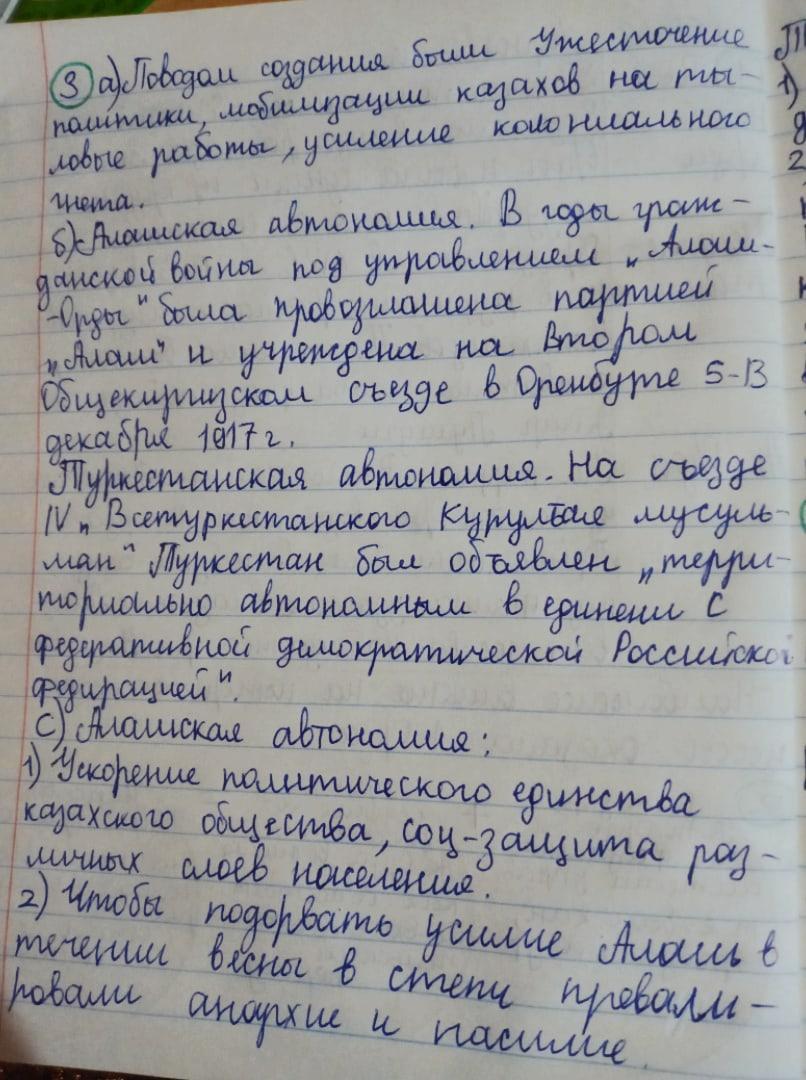 3 а) Поводом создания были Ужесточение
политики, мобилизации казахов на ты-
ловые работы, усиление колониального
гнета.
б) Алашская автономия. В годы граж-
данской войны под управлением „Алаш-
-Орды" была провозглашена партией
„Алаш" и учреждена на Втором
Общекиргизском съезде в Оренбурге 5-13
декабря 1917 г.
Туркестанская автономия. На съезде
IV „Всетуркестанского Курултая мусуль-
ман" Туркестан был объявлен „терри-
ториально автономным в единени с
федеративной демократической Российской
федирацией".
С) Алашская автономия:
1) Ускорение политического единства
казахского общества, соц-защита раз-
личных слоев населения.
2) Чтобы подорвать усилие Алаш в
течении весны в степи превали-
ровали анархие и насилие.
1)
2